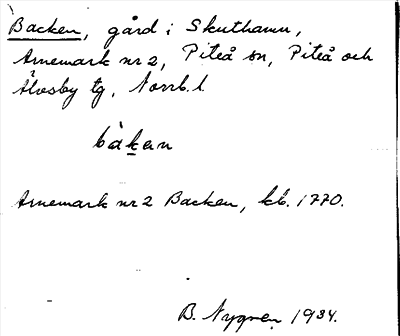 Backen, gård i Skuthamn,
Arnemark nr 2, Piteå sn, Piteå och
Älvsby tg, Norrb. l.
bàkan
Arnemark nr 2 Backen, kb. 1770.
B. Nygren 1934.